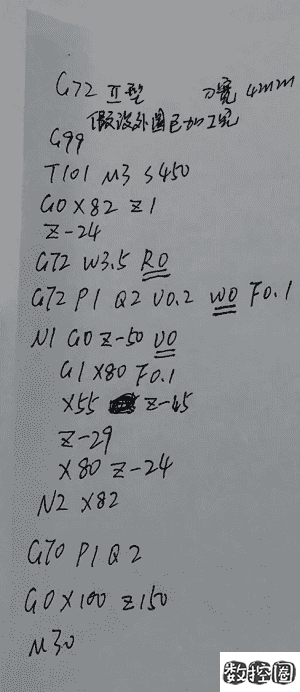 G72 II型 刀宽 4mm
假设外圆已加工完
G99
T101 M3 S450
G0 X82 Z1
Z-24
G72 W3.5 R0
G72 P1 Q2 U0.2 W0 F0.1
N1 G0 Z-50 U0
G1 X80 F0.1
X55 Z-45
Z-29
X80 Z-24
N2 X82
G70 P1 Q2
G0 X100 Z150
M30
数控圈